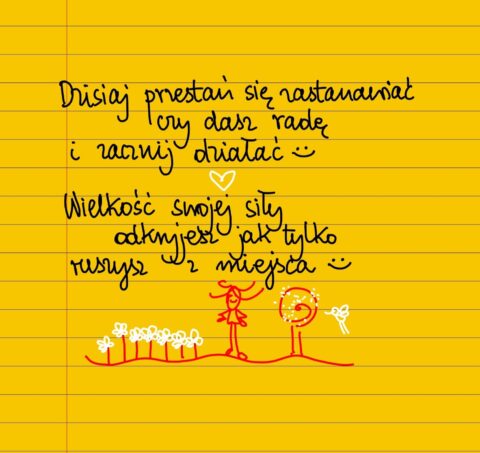 Dzisiaj przestań się zastanawiać
czy dasz radę
i zacznij działać :)
Wielkość swojej siły
odkryjesz jak tylko
ruszysz z miejsca :)